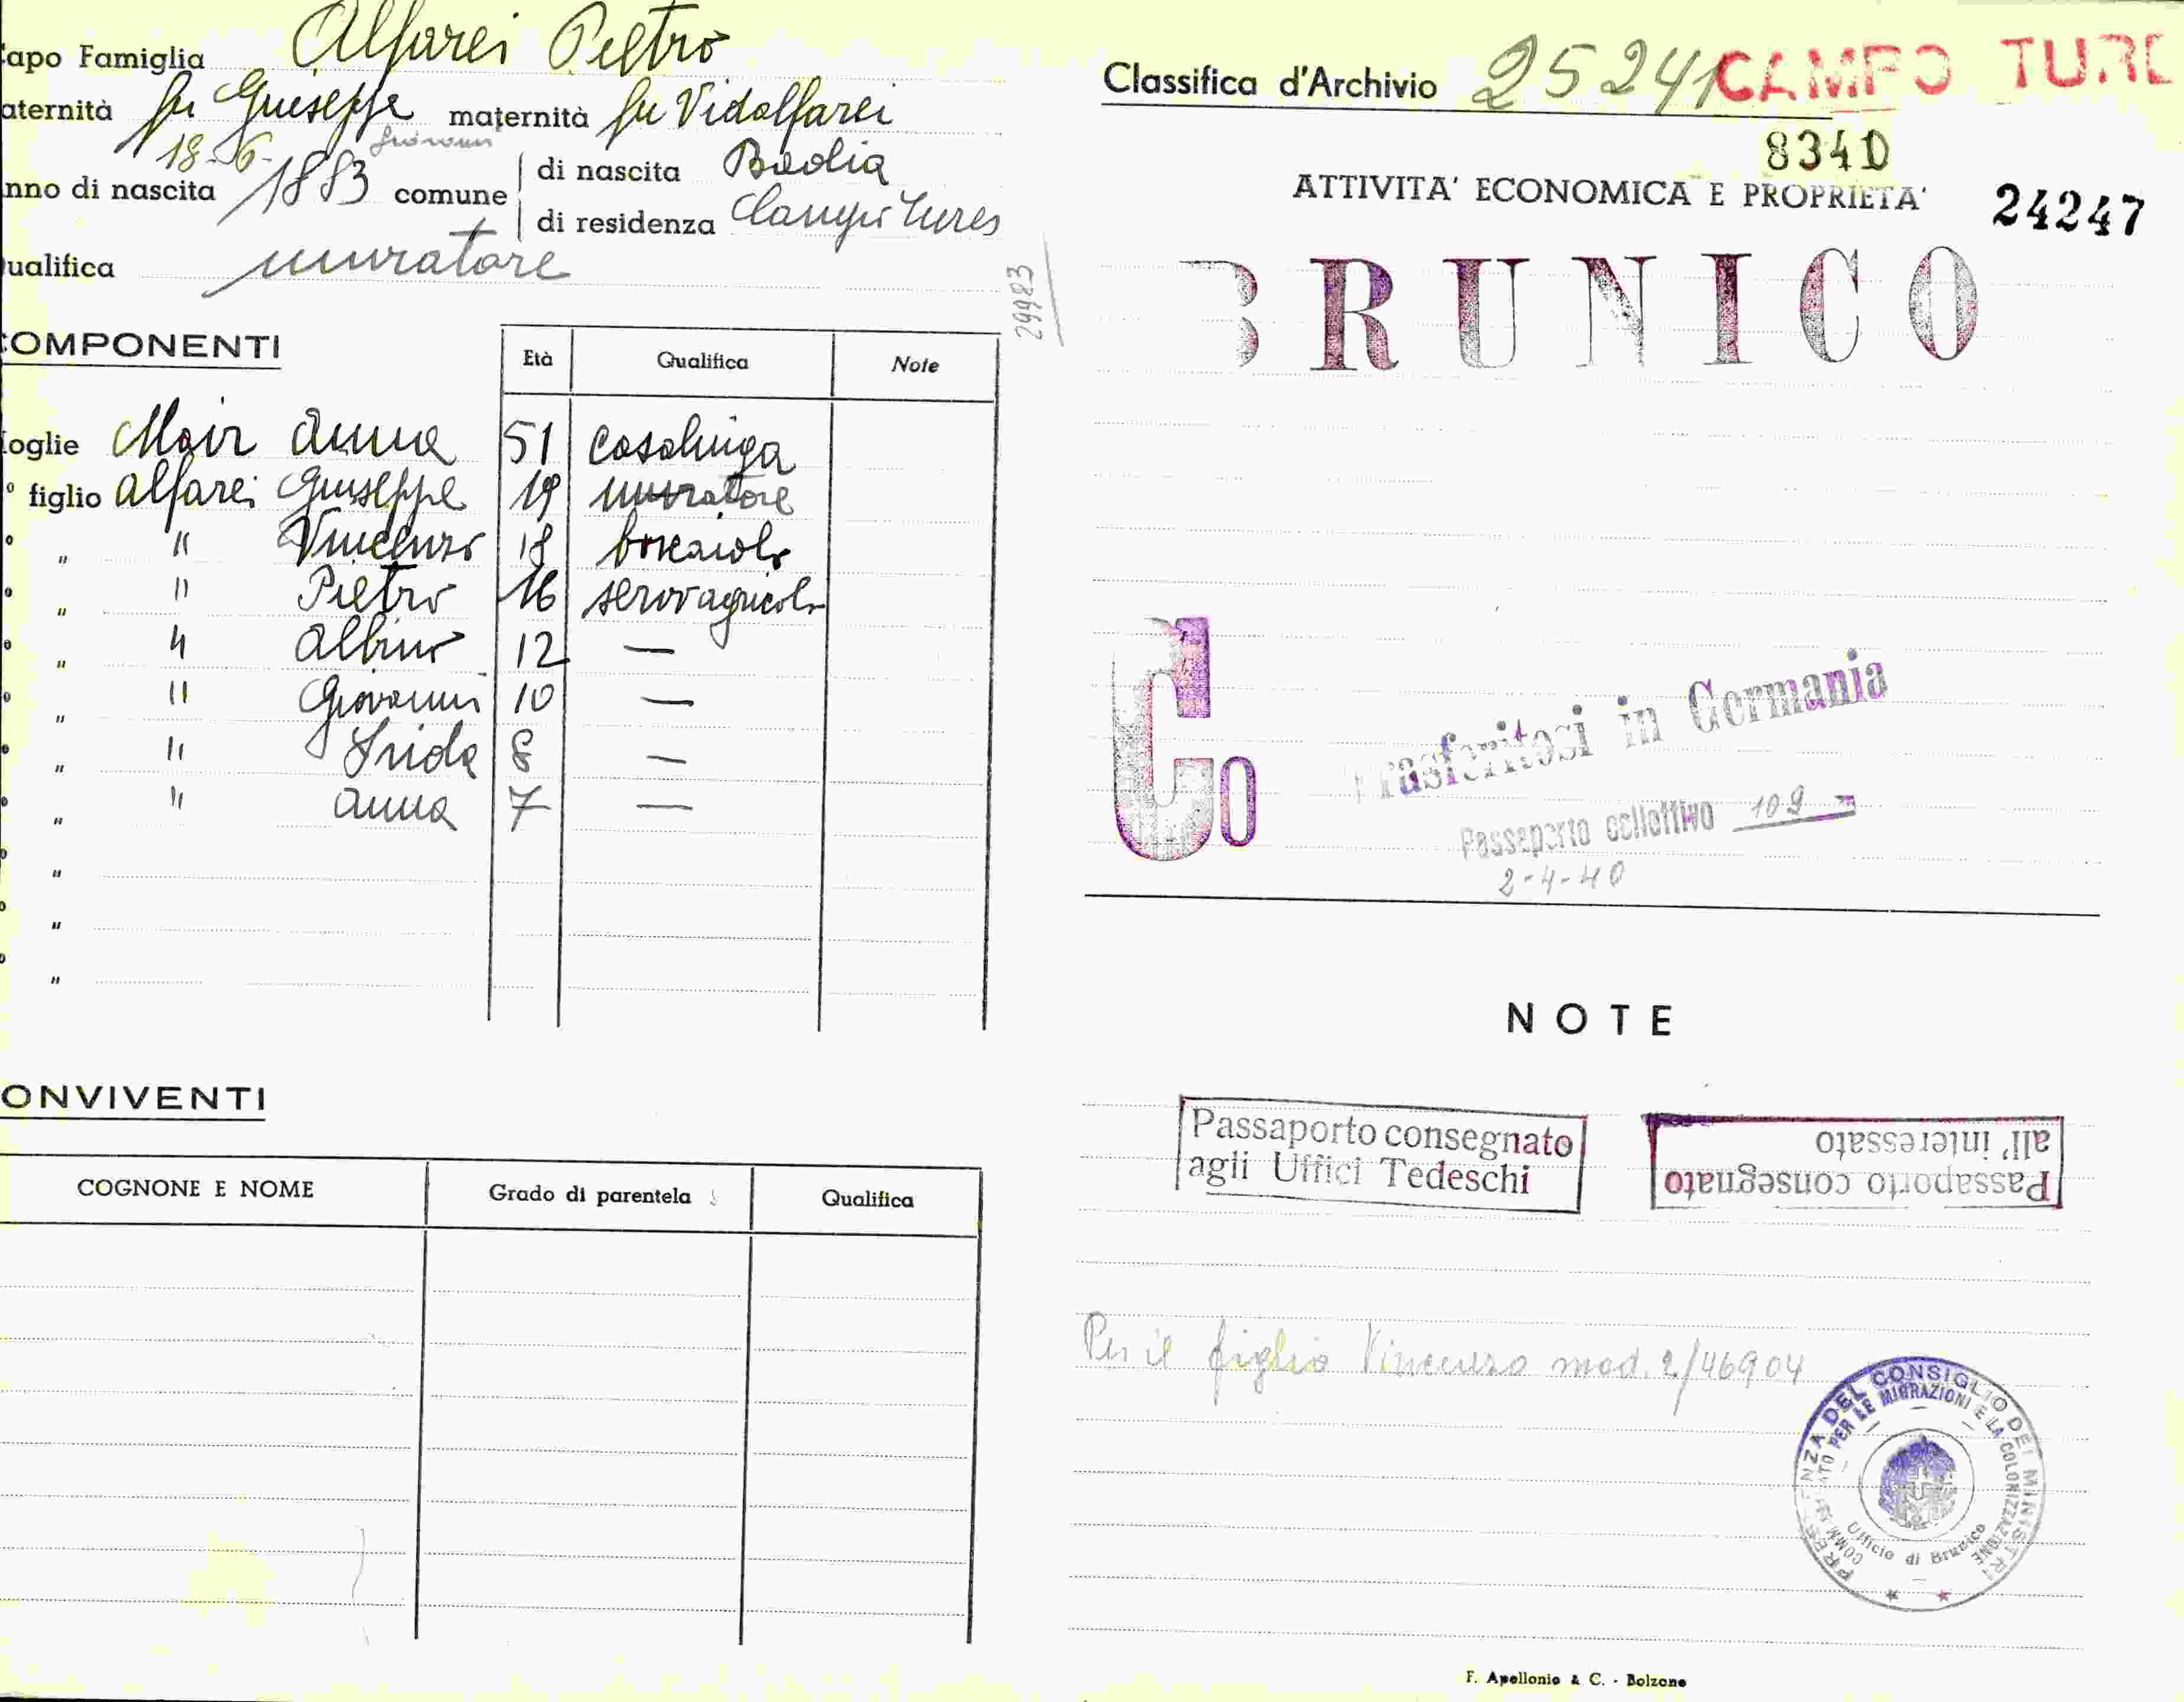 apo Famiglia Alfarei Pietro
aternità fu Giuseppe maternità fu Vidalfarei
18-6- Giovanni
nno di nascita 1883 comune di nascita Badia
di residenza Campo Tures
ualifica muratore
29983
OMPONENTI
Età Qualifica Note
oglie Mair Anna 51 casalinga
° figlio Alfarei Giuseppe 19 muratore
° " " Vincenzo 18 boscaiolo
° " " Pietro 16 servo agricolo
° " " Albino 12 —
° " " Giovanni 10 —
° " " Frida 8 —
° " " Anna 7 —
° "
° "
° "
ONVIVENTI
COGNONE E NOME Grado di parentela Qualifica
Classifica d'Archivio 25241 CAMPO TURE
8340
ATTIVITA' ECONOMICA E PROPRIETA' 24247
BRUNICO
Co
Trasferitosi in Germania
Passaporto collettivo 109
2-4-40
NOTE
Passaporto consegnato
agli Uffici Tedeschi
Passaporto consegnato
all' interessato
Per il figlio Vincenzo mod. 2/46904
PRESIDENZA DEL CONSIGLIO DEI MINISTRI
COMM. ATO PER LE MIGRAZIONI E LA COLONIZZAZIONE
Ufficio di Brunico
F. Apollonio & C. - Bolzano